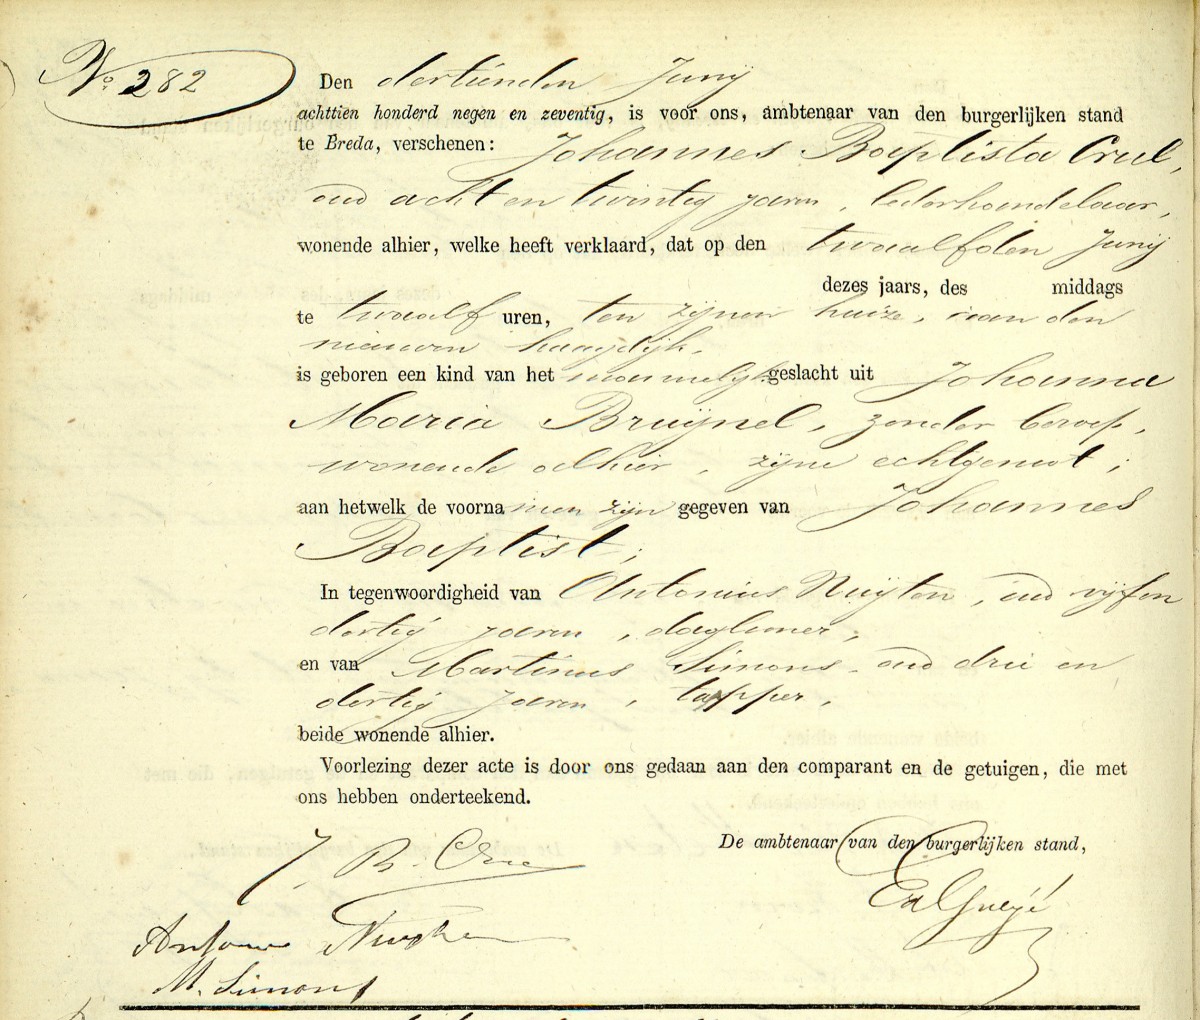 No. 282
Den dertienden Junij
achttien honderd negen en zeventig, is voor ons, ambtenaar van den burgerlijken stand
te Breda, verschenen: Johannes Baptista Crul,
oud acht en twintig jaren, lederhandelaar,
wonende alhier, welke heeft verklaard, dat op den twaalfden Junij
dezes jaars, des middags
te twaalf uren, ten zijnen huize, aan den
nieuwen haagdijk,
is geboren een kind van het mannelijk geslacht uit Johanna
Maria Bruijnel, zonder beroep,
wonende alhier, zijne echtgenoot;
aan hetwelk de voornamen zijn gegeven van Johannes
Baptist;
In tegenwoordigheid van Antonius Nuijten, oud vijf en
dertig jaren, daglooner,
en van Martinus Simons, oud drie en
dertig jaren, tapper,
beide wonende alhier.
Voorlezing dezer acte is door ons gedaan aan den comparant en de getuigen, die met
ons hebben onderteekend.
De ambtenaar van den burgerlijken stand,
J. B. Crul
M. Simons